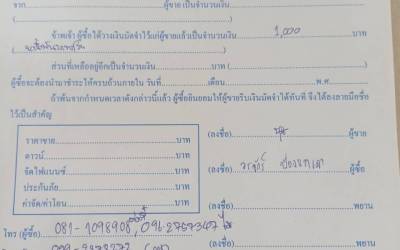 จาก..............................ผู้ขาย เป็นจำนวนเงิน..............................
ข้าพเจ้า ผู้ซื้อ ได้วางเงินมัดจำไว้แก่ผู้ขายแล้วเป็นจำนวนเงิน 1,000 บาท
ส่วนที่เหลืออยู่อีกเป็นจำนวนเงิน....................บาท (..............................)
ผู้ซื้อจะต้องนำมาชำระให้ครบถ้วนภายใน วันที่..........เดือน....................พ.ศ...........
ถ้าพ้นจากกำหนดเวลาดังกล่าวนี้แล้ว ผู้ซื้อยินยอมให้ผู้ขายริบเงินมัดจำได้ทันที จึงได้ลงลายมือชื่อ
ไว้เป็นสำคัญ
ราคาขาย....................บาท (ลงชื่อ)....................ผู้ขาย
ดาวน์....................บาท
จัดไฟแนนซ์....................บาท (ลงชื่อ) ผู้ซื้อ
ประกันภัย....................บาท
ค่าจัด/ค่าโอน....................บาท (ลงชื่อ)....................พยาน
โทร (ผู้ซื้อ) 081-1098908, 096-2767347
(ลงชื่อ)....................พยาน